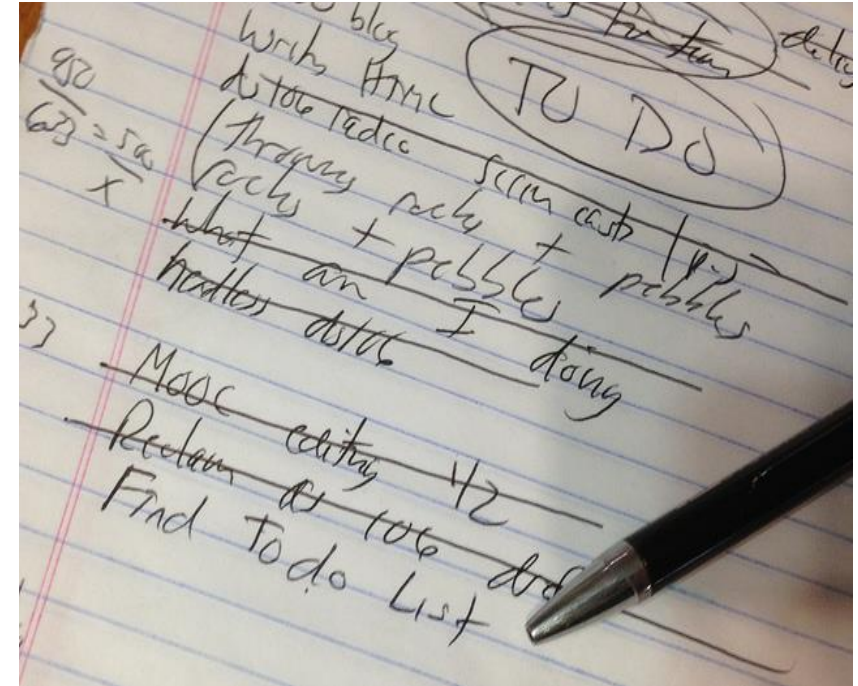 TO DO
blog
Write HTML
ds106 radio screen casts
(Throwing rocks + pebbles
rocks + pebbles
What am I doing
headless ds106
Mooc editing 1/2
Reclaim ds 106
Find To do List
950
623 = 500
X
33